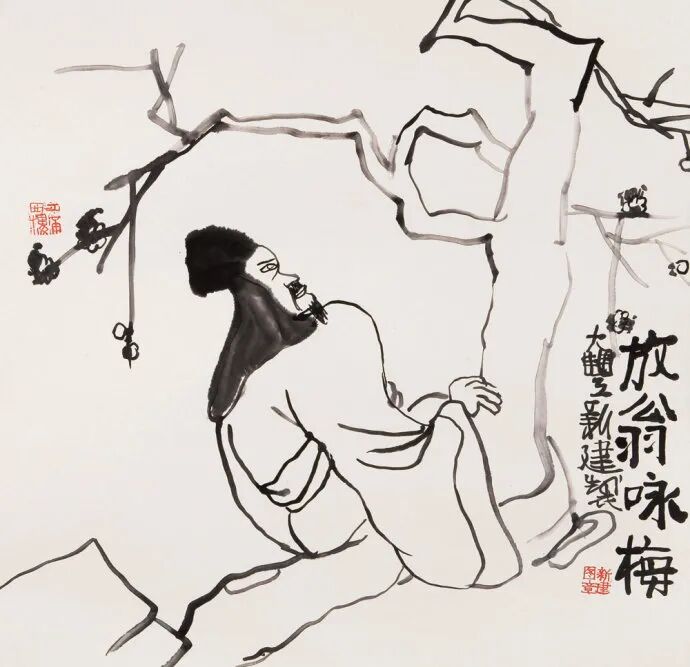 放翁咏梅
大豐新建製
新建
图章